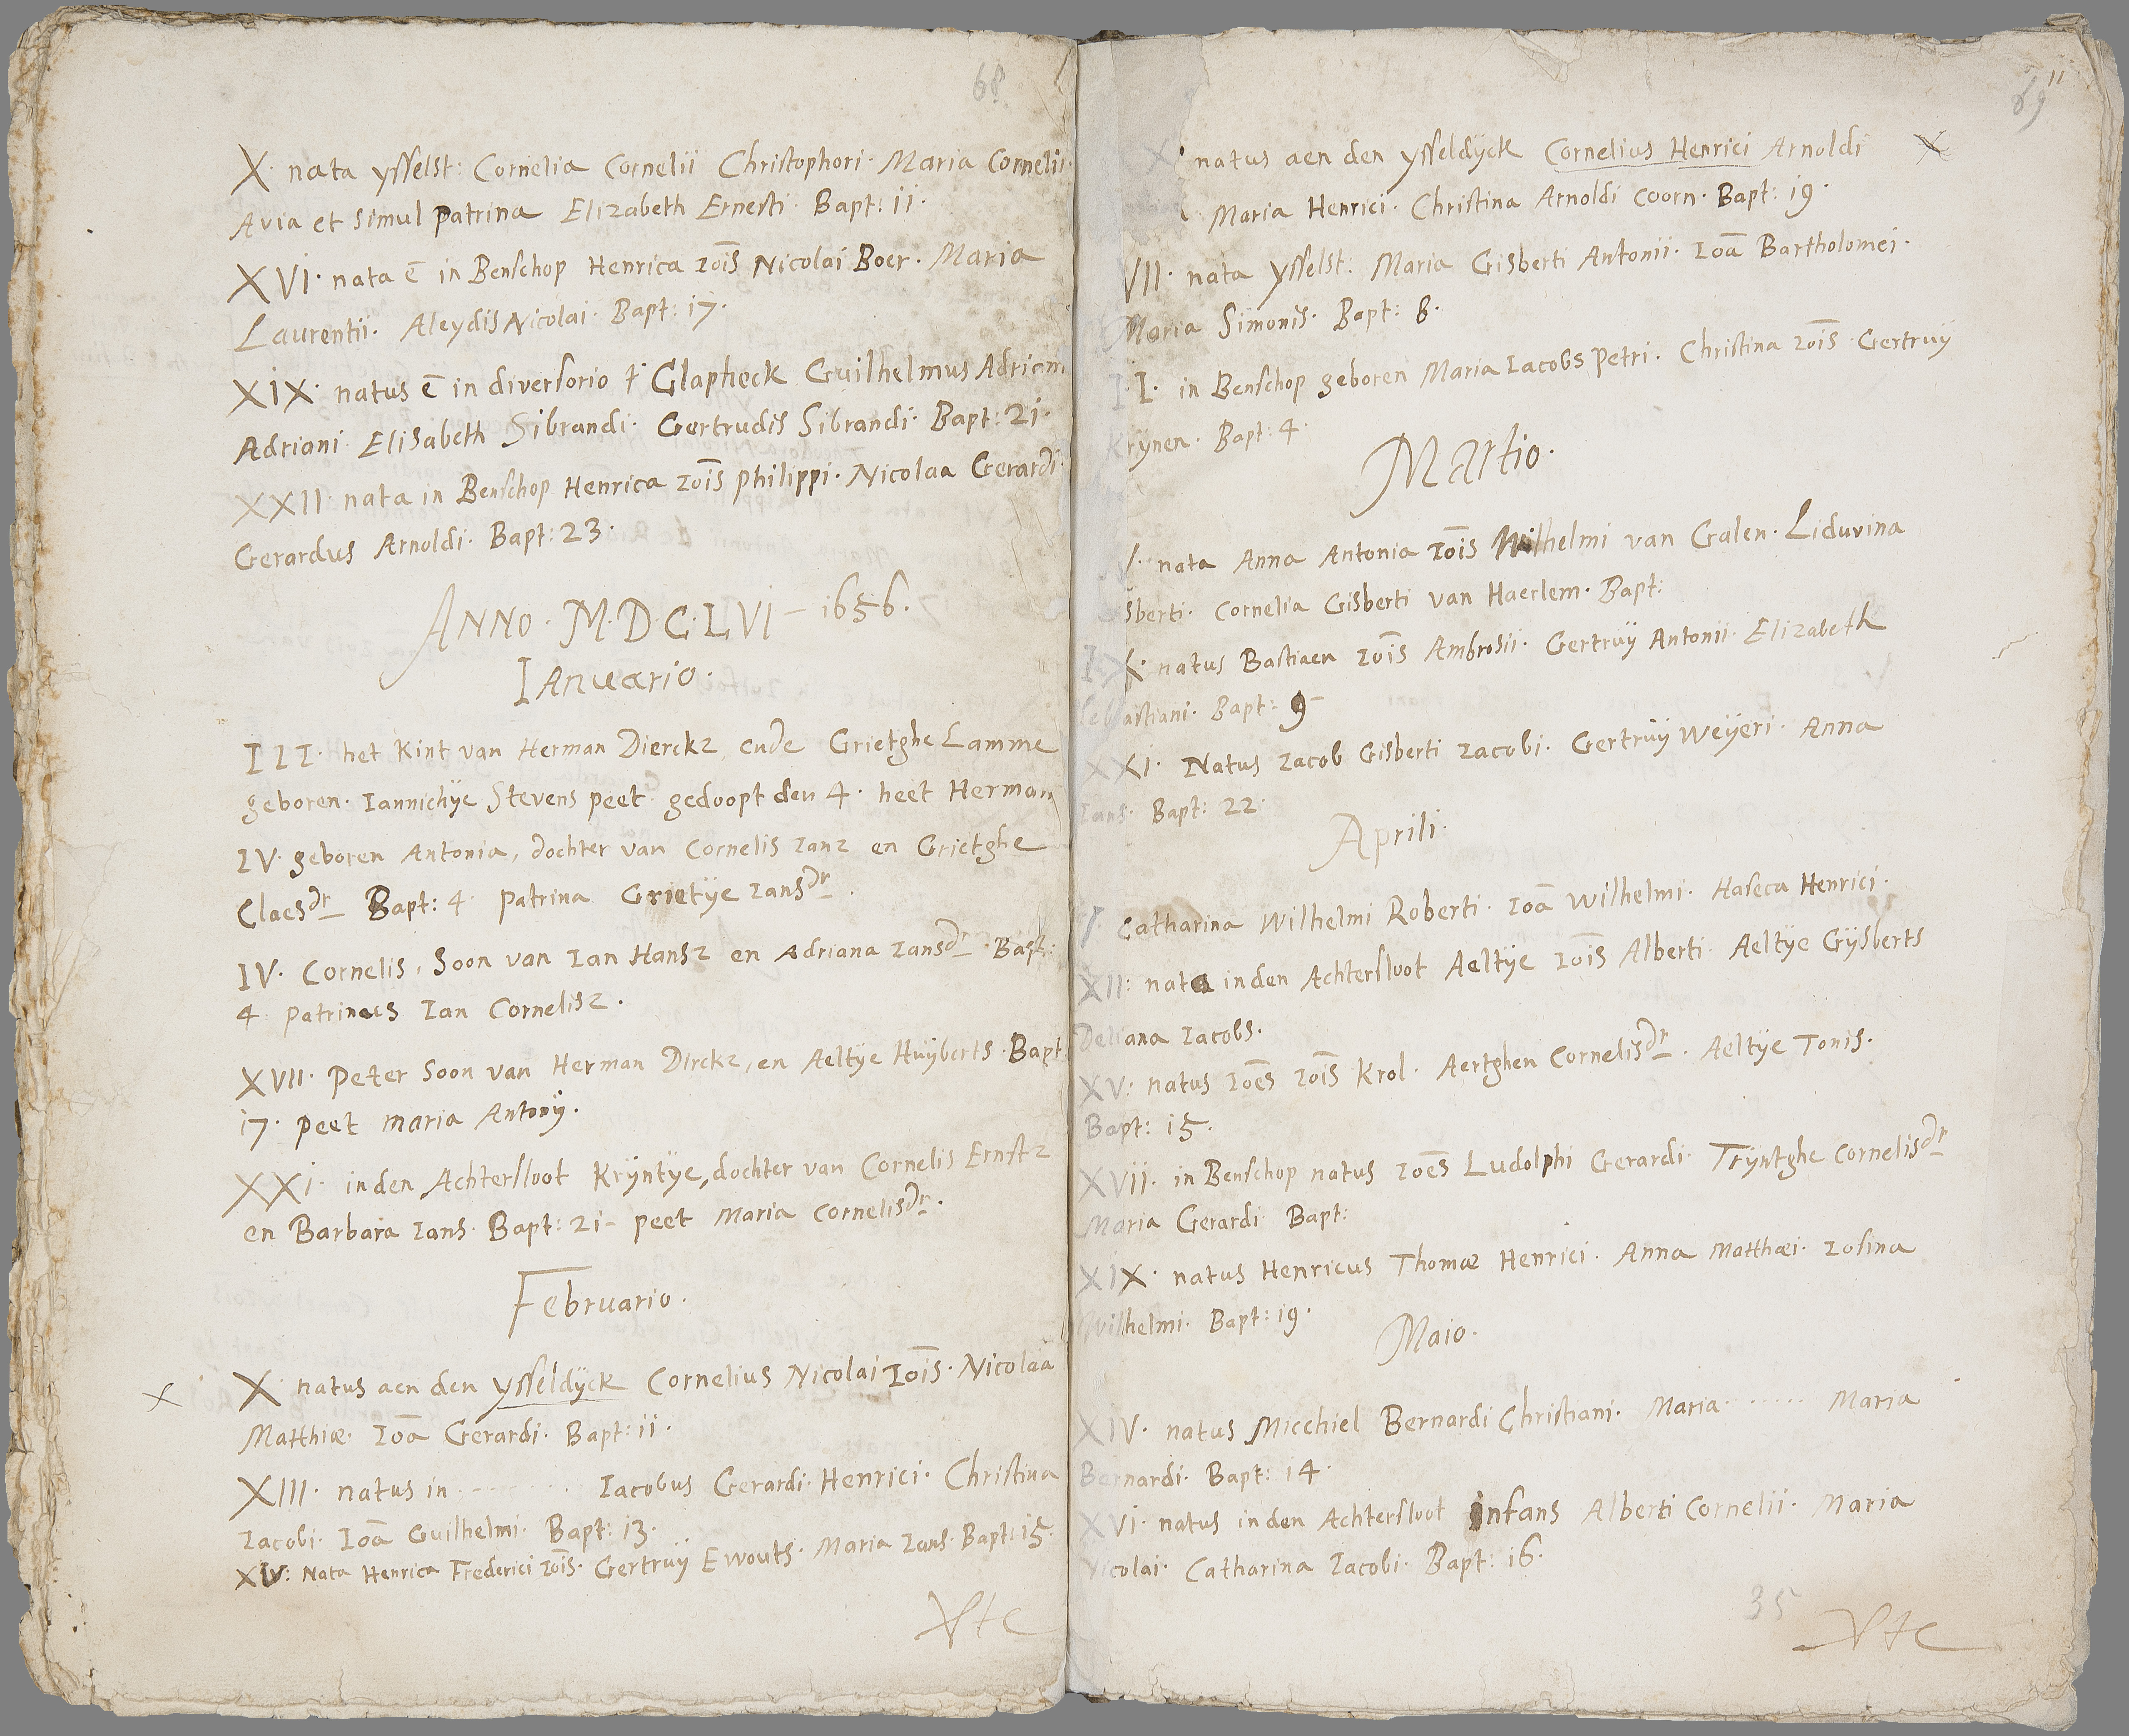 68
X. nata ysselst: Cornelia Cornelii Christophori. Maria Cornelii.
Avia et simul patrina Elizabeth Ernesti. Bapt: ii.
XVI. nata ē in Benschop Henrica Ioīs Nicolai Boer. Maria
Laurentii. Aleydis Nicolai. Bapt: i7.
XIX. natus ē in diversorio Glapheck Guilhelmus Adriani
Adriani Elisabeth Sibrandi. Gertrudis Sibrandi. Bapt: 2i.
XXII. nata in Benschop Henrica Ioīs philippi. Nicolaa Gerardi.
Gerardus Arnoldi. Bapt: 23.
ANNO. M.D.C.LVI – i656.
IAnuario.
III. het Kint van Herman Dierckz, ende Grietghe Lamme
geboren. Iannichÿe Stevens peet. gedoopt den 4. heet Herman
IV. geboren Antonia, dochter van Cornelis Ianz en Grietghe
Claesdr Bapt: 4. patrina Grietÿe Iansdr.
IV. Cornelis, Soon van Ian Hansz en Adriana Iansdr. Bapt:
4. patrinus Ian Cornelisz.
XVII. Peter Soon van Herman Dirckz, en Aeltÿe Huÿberts. Bapt
i7. peet maria Antonÿ.
XXI. inden Achtersloot Krÿntÿe, dochter van Cornelis Ernstz
en Barbara Ians. Bapt: 2i – peet Maria Cornelisdr.
Februario.
X X. natus aen den ÿsseldÿck Cornelius Nicolai Ioīs. Nicolaa
Matthiæ. Ioā Gerardi. Bapt: ii.
XIII. natus in ........ Iacobus Gerardi Henrici. Christina
Iacobi. Ioā Guilhelmi. Bapt: i3.
XIV: Nata Henrica Frederici Ioīs. Gertruÿ Ewouts. Maria Ians. Bapt: i5.
Vte
11
69
X. natus aen den ÿsseldÿck Cornelius Henrici Arnoldi X
Maria Henrici. Christina Arnoldi Coorn. Bapt: i9.
VII. nata ysselst: Maria Gisberti Antonii. Ioā Bartholomei.
Maria Simonis. Bapt: 8.
I.I. in Benschop geboren Maria Iacobs petri. Christina Ioīs. Gertruÿ
Krÿnen. Bapt: 4.
Martio.
I. nata Anna Antonia Ioīs Wilhelmi van Galen. Liduvina
sberti. Cornelia Gisberti van Haerlem. Bapt:
IX. natus Bastiaen Ioīs Ambrosii. Gertruÿ Antonii. Elizabeth
Sebastiani. Bapt: 9–
XXI. Natus Iacob Gisberti Iacobi. Gertruÿ Weÿeri. Anna
Ians. Bapt: 22.
Aprili.
I. Catharina Wilhelmi Roberti. Ioā Wilhelmi. Haseca Henrici.
XII: nata inden Achtersloot Aeltÿe Ioīs Alberti. Aeltÿe Gÿsberts
Deliana Iacobs.
XV: natus Ioēs Ioīs Krol. Aertghen Cornelisdr. Aeltÿe Tonis.
Bapt: i5.
XVII. in Benschop natus Ioēs Ludolphi Gerardi. Trÿntghe Cornelisdr
Maria Gerardi Bapt:
XIX. natus Henricus Thomæ Henrici. Anna Matthæi. Iosina
Wilhelmi. Bapt: i9.
Maio.
XIV. natus Micchiel Bernardi Christiani. Maria ...... Maria
Bernardi. Bapt: i4.
XVI. natus inden Achtersloot infans Alberti Cornelii. Maria
Nicolai. Catharina Iacobi. Bapt: i6.
35
Vte